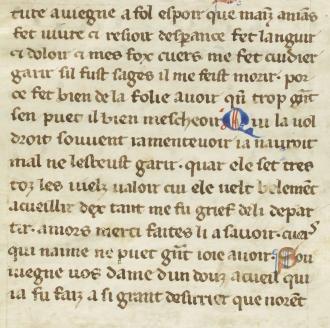 ture auiegne a fol espoir que mainz amans
fet uiure ci resioir desperance fet languir
ci doloir ci mes fox cuers me fet cuidier
garir sil fust sages il me feist morir. por
ce fet bien de la folie auoir qn trop grãt
sen puet il bien mescheoir Qui la uol
droit souuent ramenteuoir ia nauroit
mal ne lesteust garir. quar ele set tres
toz les uielz ualoir cui ele uelt belemẽt
acueillir dex tant me fu grief de li depar
tir. amors merci faites li a sauoir. cuers
qui naime ne puet grãt ioie auoir. Sou
uiegne uos dame dun douz acueil qui
ia fu faiz a si grant desirrier que norent